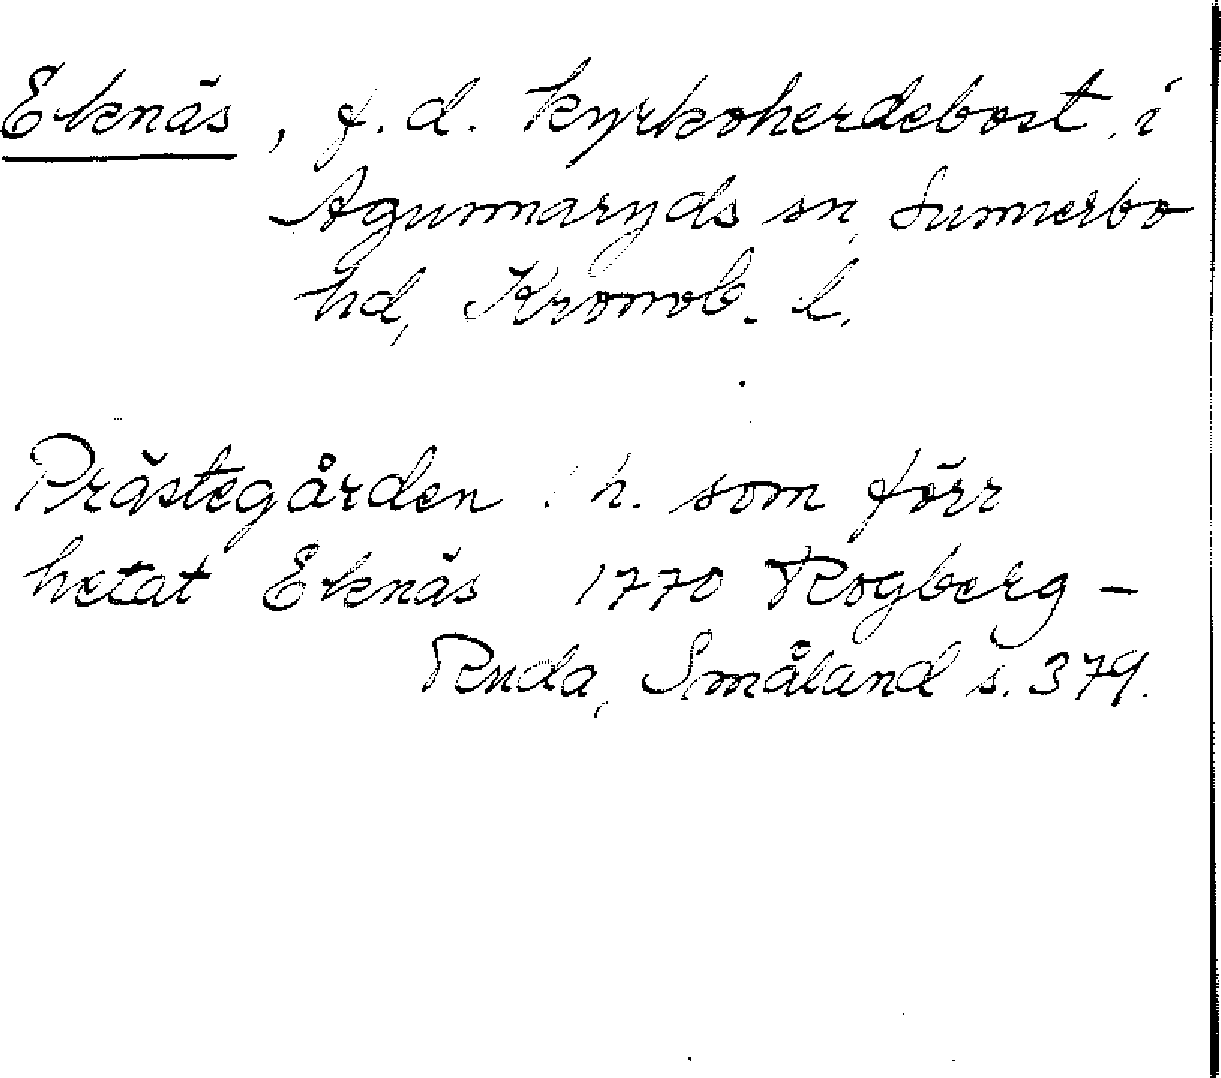 Eknäs, f.d. kyrkoherdebost. i
Agunnaryds sn, Sunnerbo
hd, Kronob. l.
Prästegården : h. som förr
hetat Eknäs 1770 Rogberg –
Ruda, Småland s. 379.